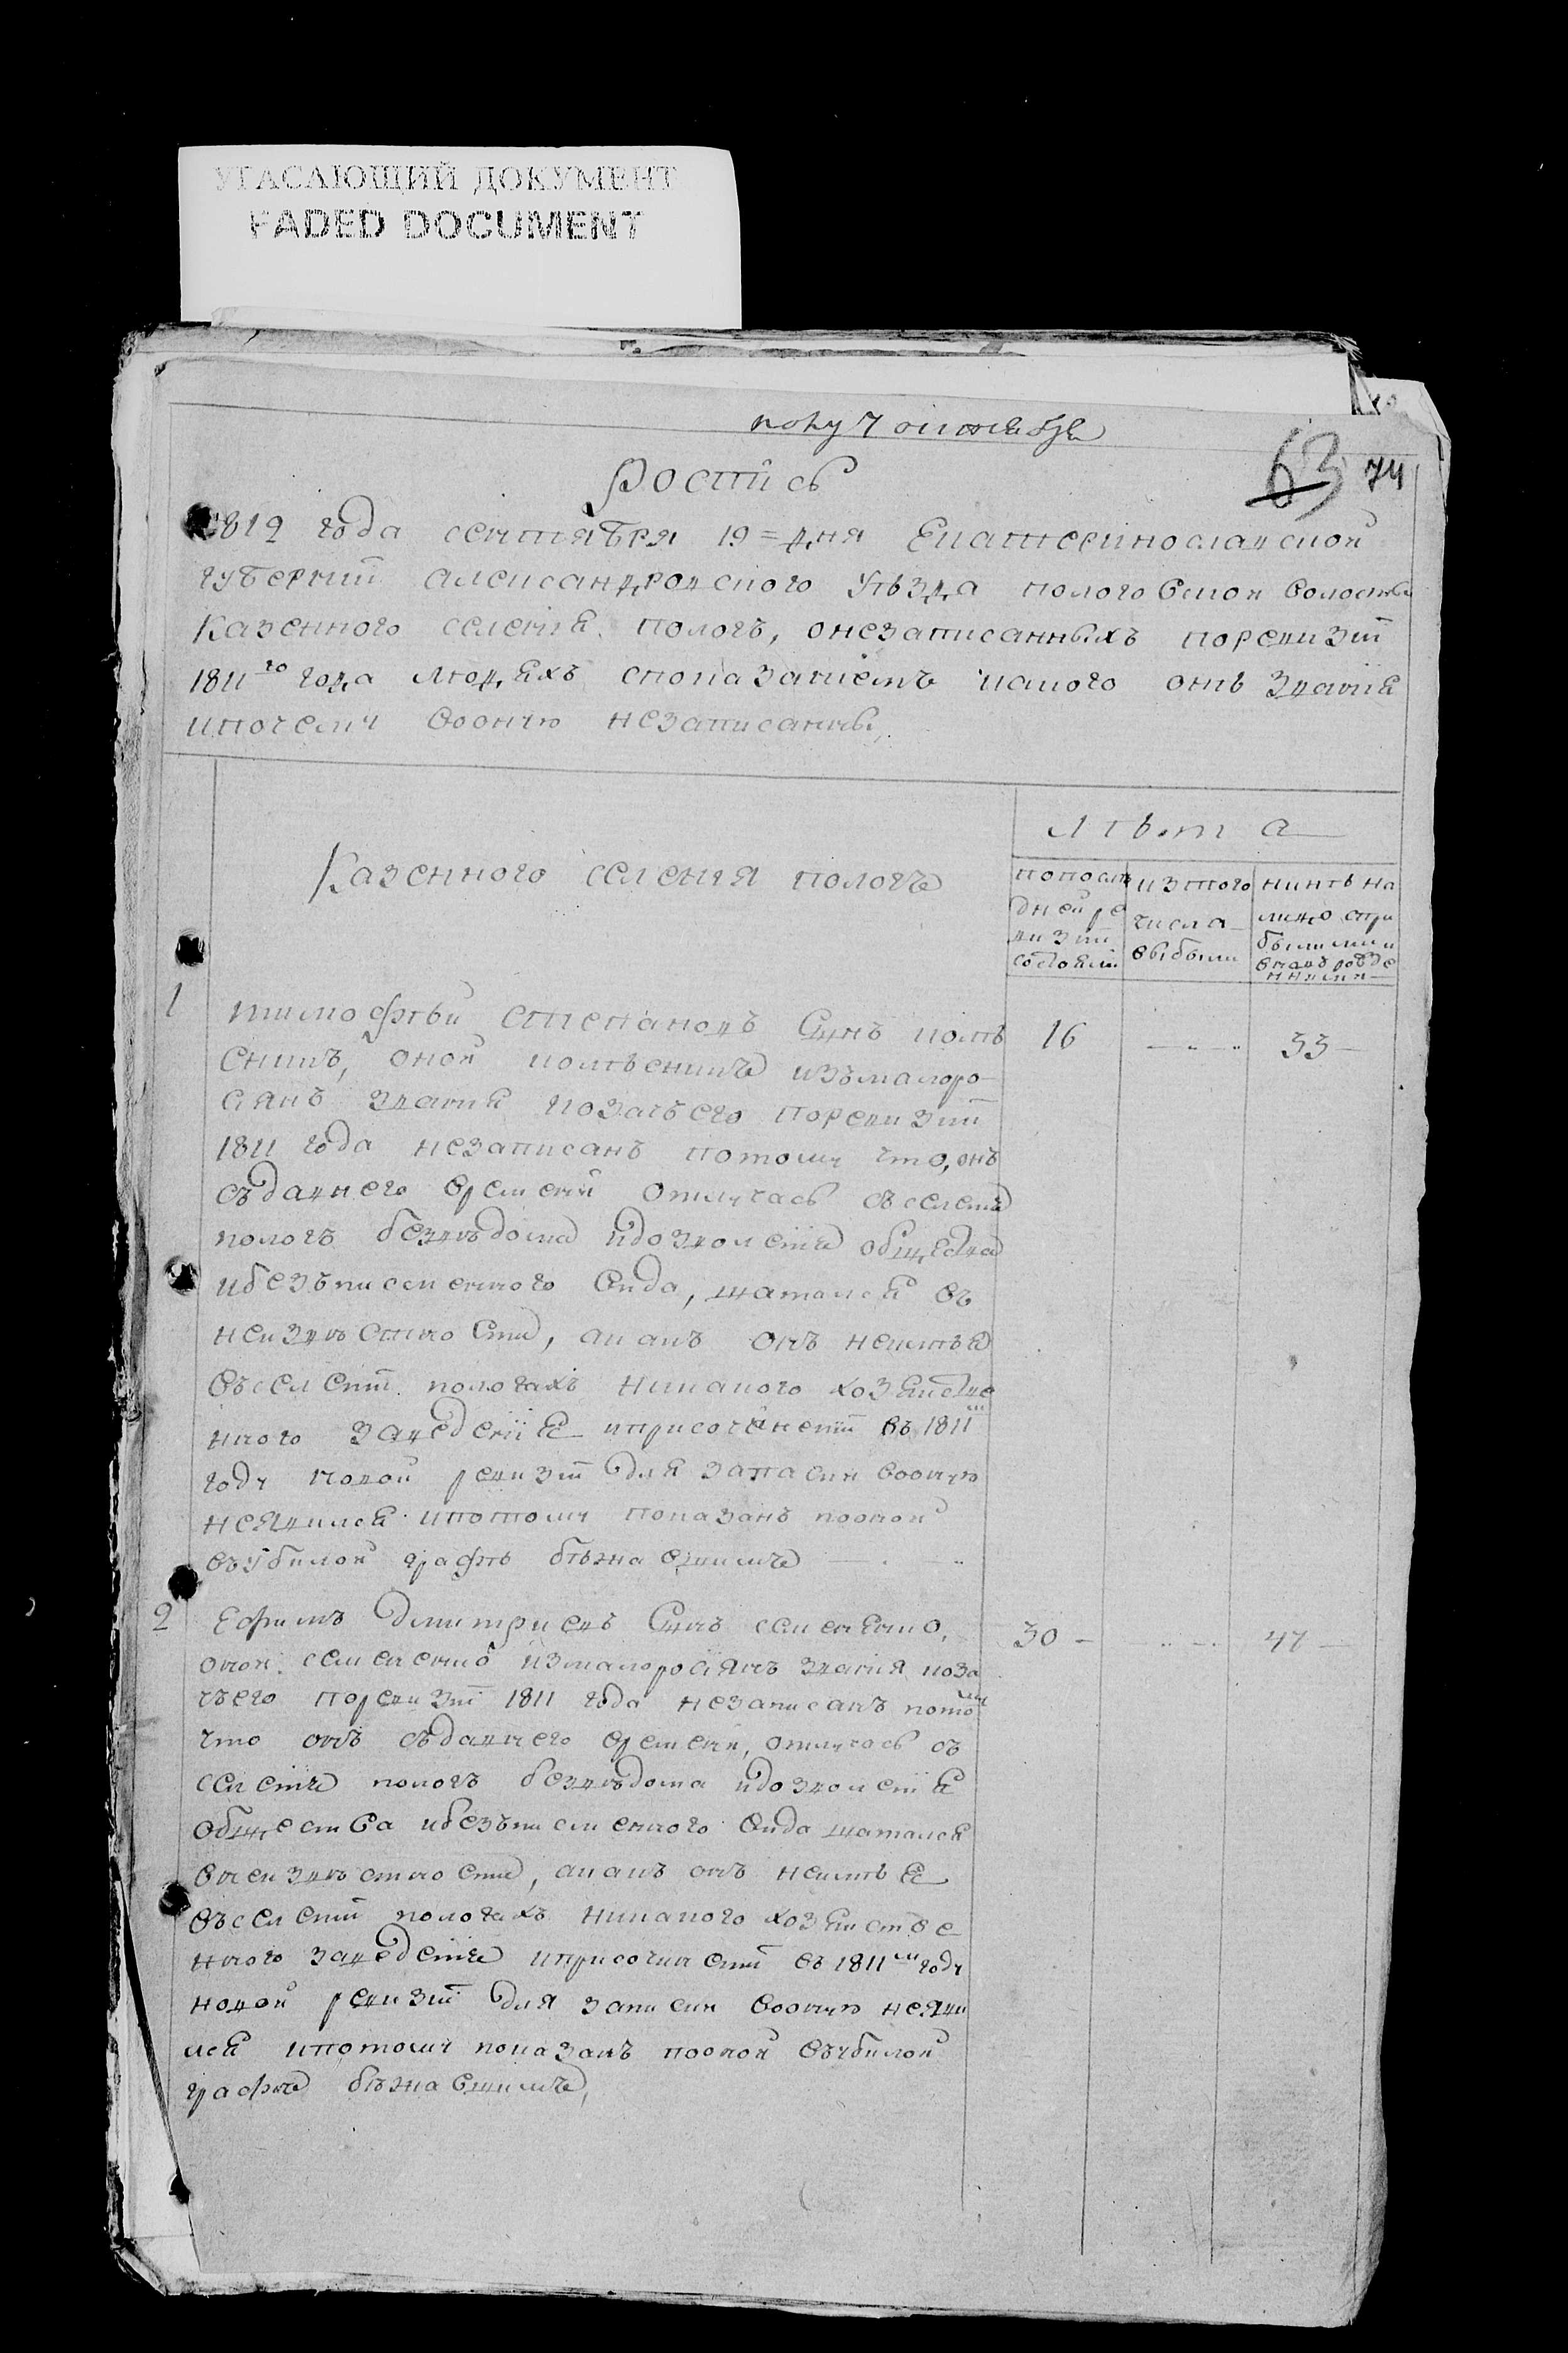 УГАСАЮЩИЙ ДОКУМЕНТ
FADED DOCUMENT
7 октября
63 74
роспись
1812 года сентября 19 = дня Екатеринославской
губернии александровского уѣзда пологовской волости
казенного селения пологъ, онезаписанныхъ поревизии
1811го года людяхъ споказаниемъ какого онѣ звания
ипочему вооную незаписаны,
Казенного селения пологъ
лѣта
попослѣ
дней ре
визии
состояли
изтого
числа
выбыли
нинѣ на
лицо
1
тимофѣй степановъ сынъ
оной изъмалоро
сиянъ звания козачьего поревизии
1811 года незаписанъ потому что, онъ
съдавнего времени отлучась съселения
пологъ безвѣдома идозволения общества
ибезъписменного вида, шатался въ
неизвѣстности, акакъ онъ неимѣя
въселении пологахъ никакого хозяйстве
нного заведения иприсочинении въ 1811м
году новой ревизии для записки вооную
неявился ипотому показанъ пооной
въубилой графѣ бѣжавшимъ
16
33
2
Ефимъ дмитриевъ сынъ семененко,
оной семененко измалоросиянъ звания коза
чьего поревизии 1811 года незаписанъ потому
что онъ съдавнего времени, отлучась съ
селения пологъ безвѣдома идозволения
общества ибезъписменного вида шатался
внеизвѣстности, акакъ онъ неимѣя
въселении пологахъ никакого хозяйстве
нного заведения иприсочинении въ 1811м году
новой ревизии для записки вооную неяви
лся ипотому показанъ пооной въубилой
графѣ бѣжавшимъ,
30
47